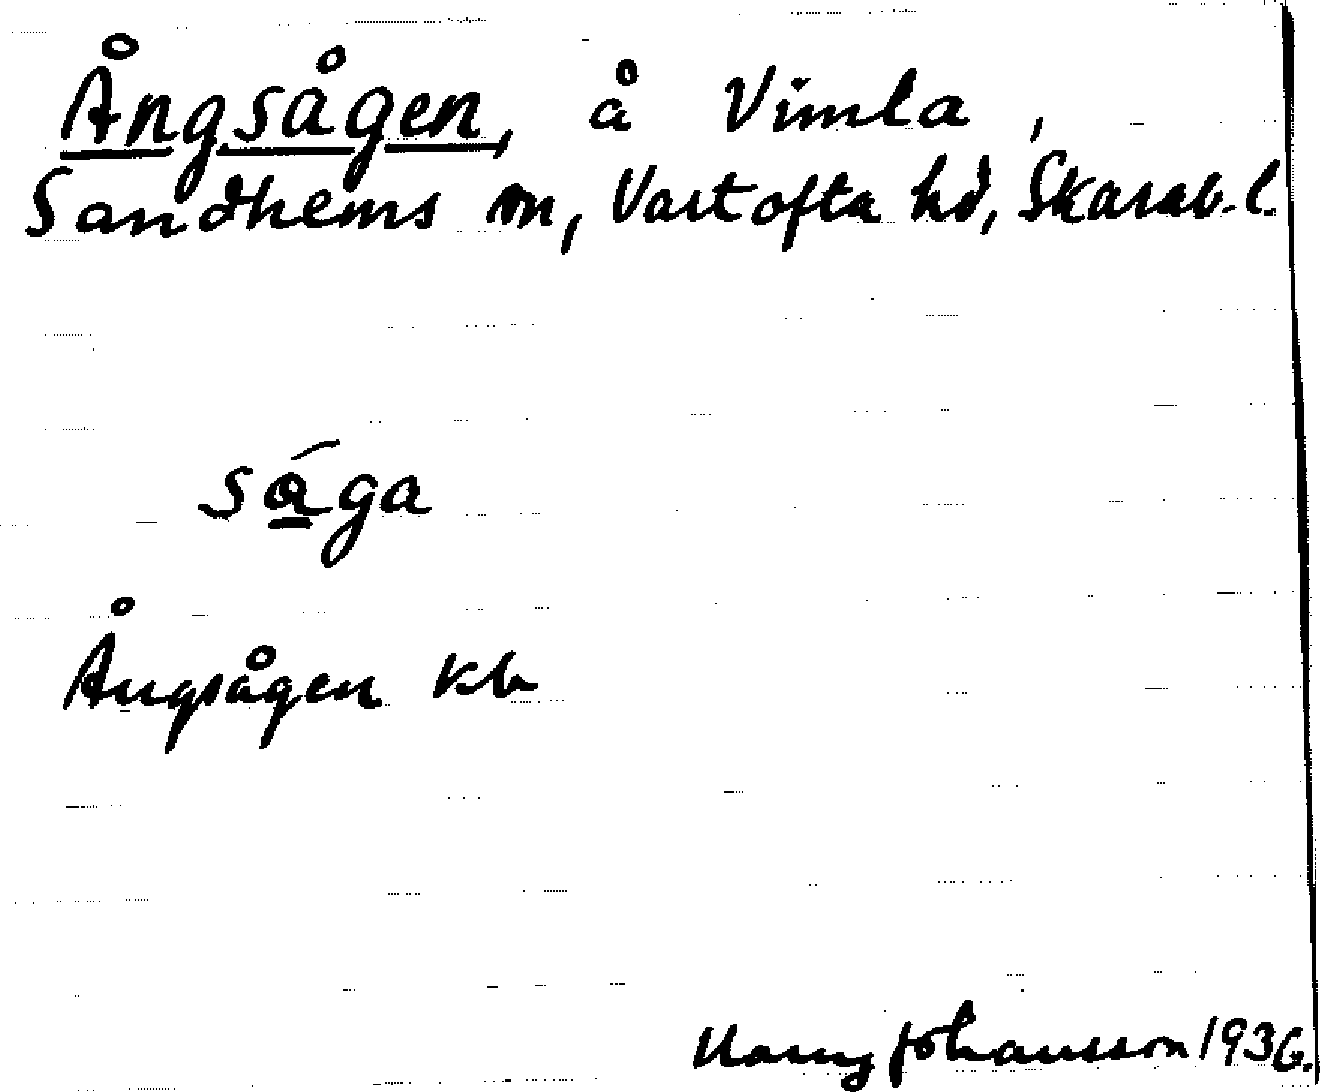 Ångsågen, å Vimla,
Sandhems sn, Vartofta hd, Skarab. l.
såga
Ångsågen kb
Harry Johansson 1936.